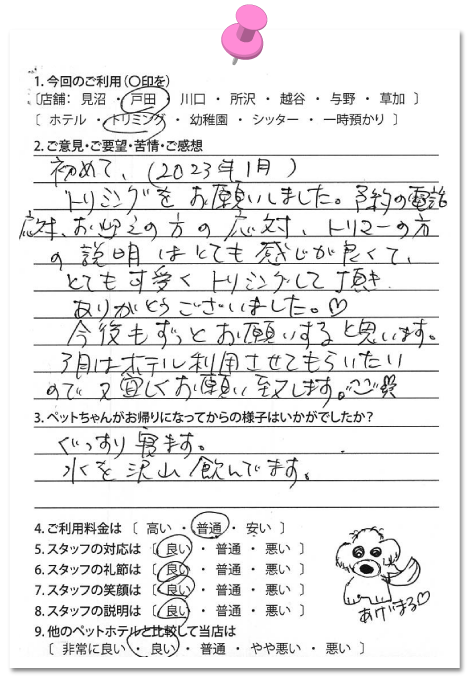 1. 今回のご利用(〇印を)
〔店舗: 見沼 ・ 戸田 ・ 川口 ・ 所沢 ・ 越谷 ・ 与野 ・ 草加 〕
〔 ホテル ・ トリミング ・ 幼稚園 ・ シッター ・ 一時預かり 〕
2. ご意見・ご要望・苦情・ご感想
初めて、(2023年1月)
トリミングをお願いしました。予約の電話
応対、お迎えの方の応対、トリマーの方
の説明はとても感じが良くて、
とても可愛くトリミングして頂き
ありがとうございました。♡
今後もずっとお願いすると思います。
3月はホテル利用させてもらいたい
ので又宜しくお願い致します。
3. ペットちゃんがお帰りになってからの様子はいかがでしたか?
ぐっすり寝ます。
水を沢山飲んでます。
4. ご利用料金は 〔 高い ・ 普通 ・ 安い 〕
5. スタッフの対応は 〔 良い ・ 普通 ・ 悪い 〕
6. スタッフの礼節は 〔 良い ・ 普通 ・ 悪い 〕
7. スタッフの笑顔は 〔 良い ・ 普通 ・ 悪い 〕
8. スタッフの説明は 〔 良い ・ 普通 ・ 悪い 〕
あげまる♡
9. 他のペットホテルと比較して当店は
〔 非常に良い ・ 良い ・ 普通 ・ やや悪い ・ 悪い 〕